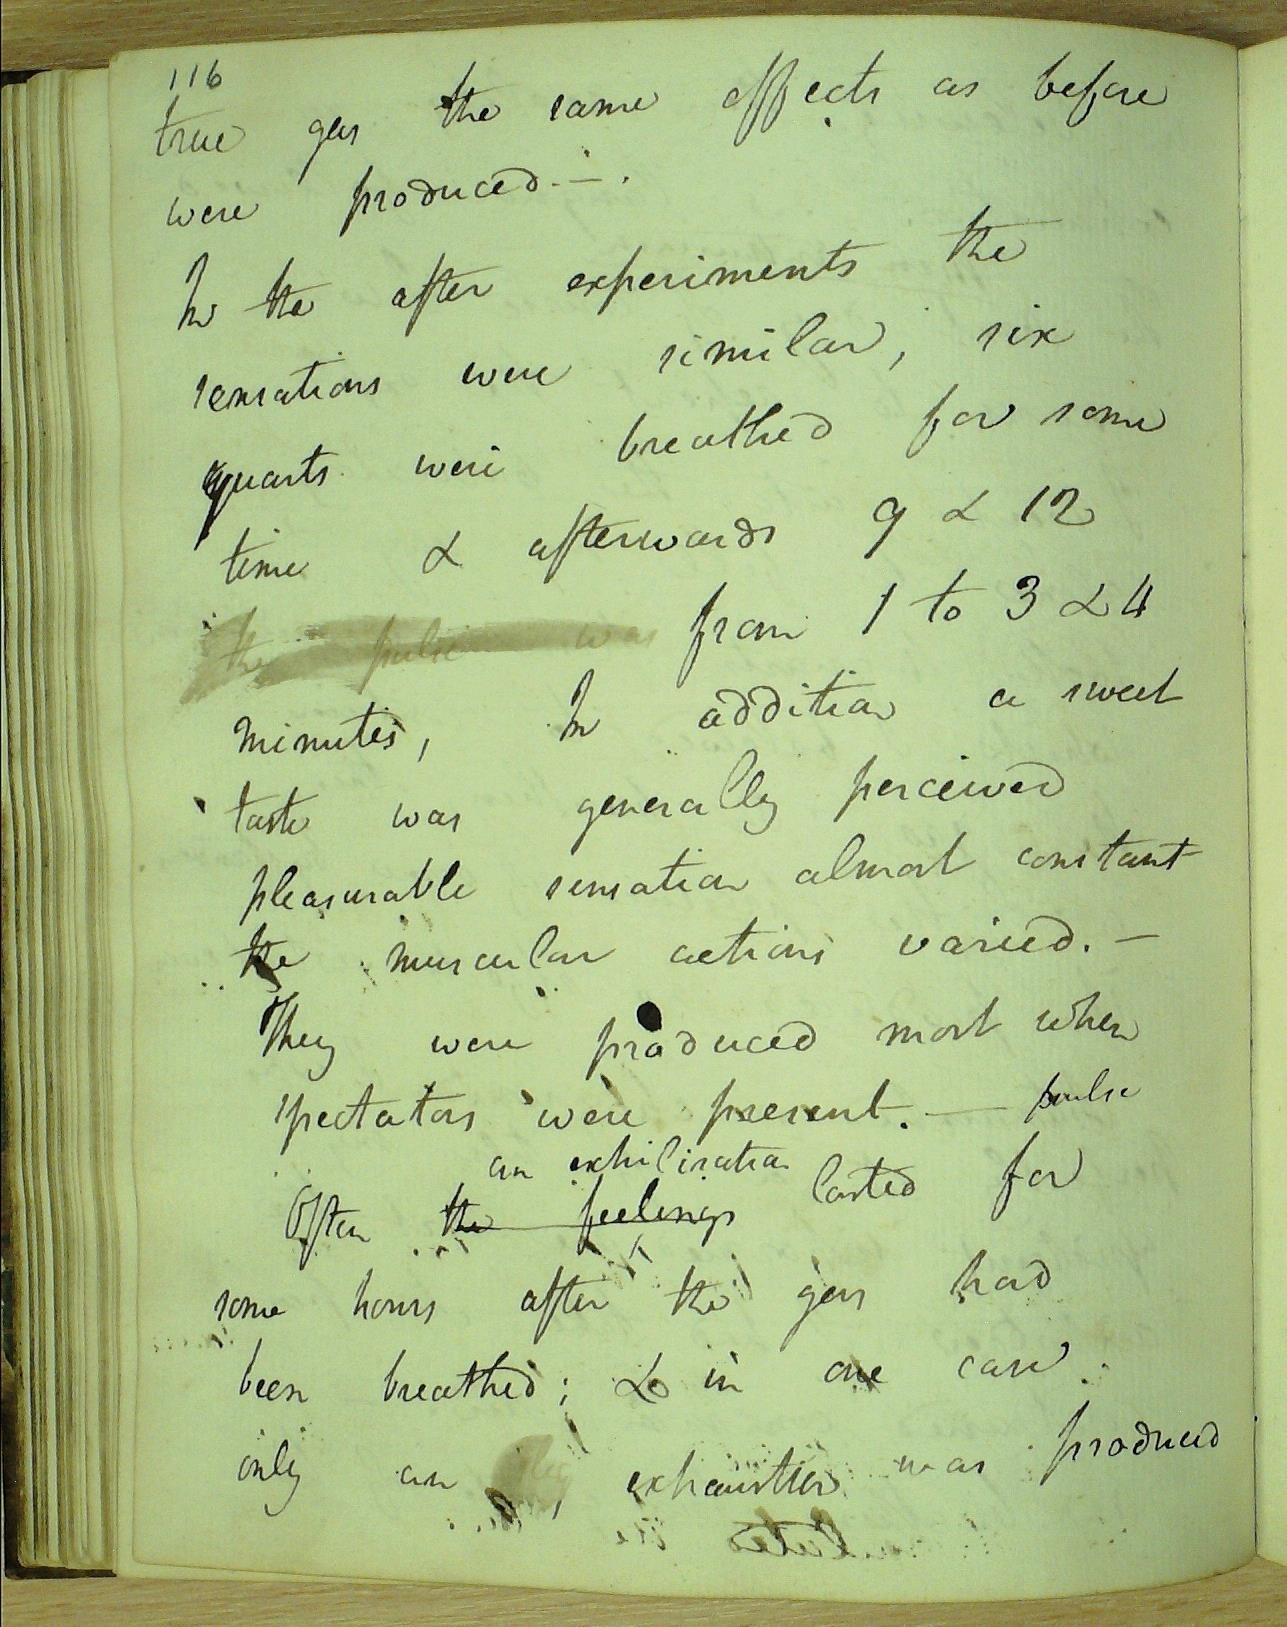 116
true gas the same effects as before
were produced. — .
In the after experiments the
sensations were similar, six
quarts were breathed for some
time & afterwards 9 & 12
the pulse was from 1 to 3 & 4
minutes, In addition a sweet
taste was generally perceived
pleasurable sensation almost constant
the muscular actions varied. —
They were produced most when
spectators were present. — pulse
an exhiliration
Often the feelings lasted for
some hours after the gas had
been breathed; & in one case
only an exhaustion was produced